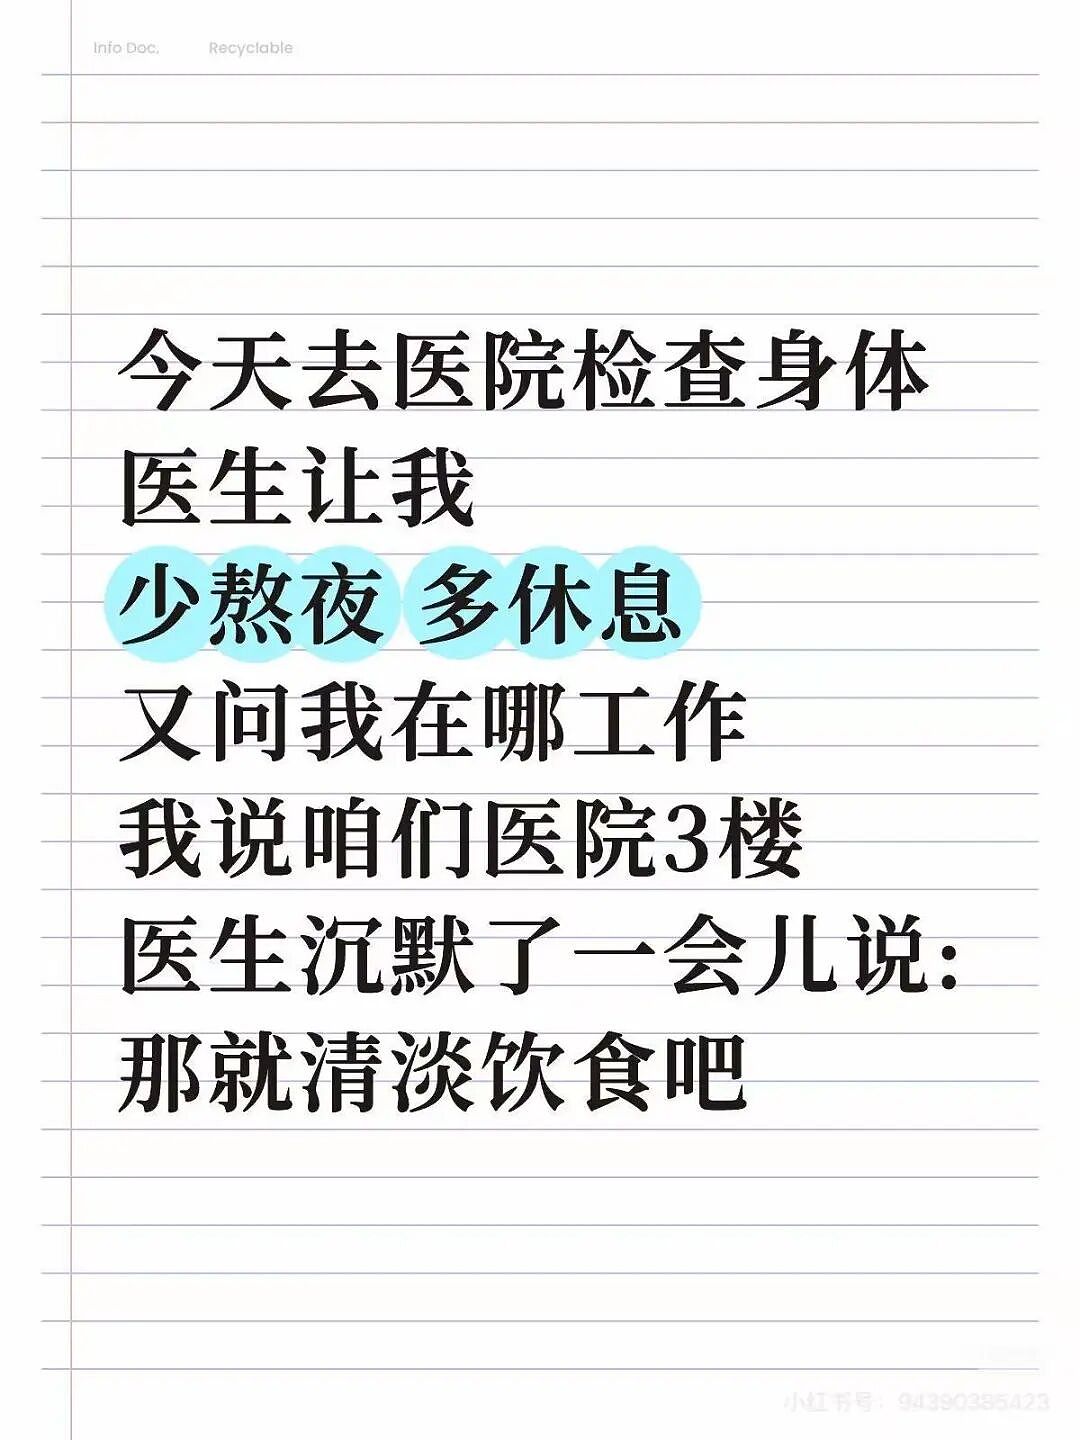 Info Doc. Recyclable
今天去医院检查身体
医生让我
少熬夜 多休息
又问我在哪工作
我说咱们医院3楼
医生沉默了一会儿说：
那就清淡饮食吧
小红书号：94390385423